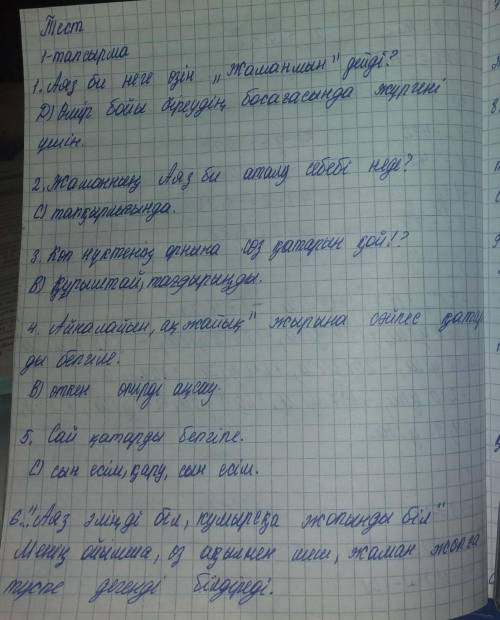 Тест
1-тапсырма
1. Аяз би неге өзін „Жаманмын" дейді?
D) Өмір бойы біреудің босағасында жүргені
үшін.
2. Жаманның Аяз би аталу себебі неде?
С) тапқырлығында.
3. Көп нүктенің орнына сөз қатарын қой!?
В) Құрыштай, тағдырыңды.
4. Айналайын, ақ жайық" жырына сәйкес қата
ды белгіле.
В) өткен өмірді аңсау.
5. Сай қатарды белгіле.
С) сын есім, қару, сын есім.
6. "Аяз әліңді біл, құмырсқа жолыңды біл"
Менің ойымша, өз ақылмен шеш, жаман жолға
түспе дегенді білдіреді.